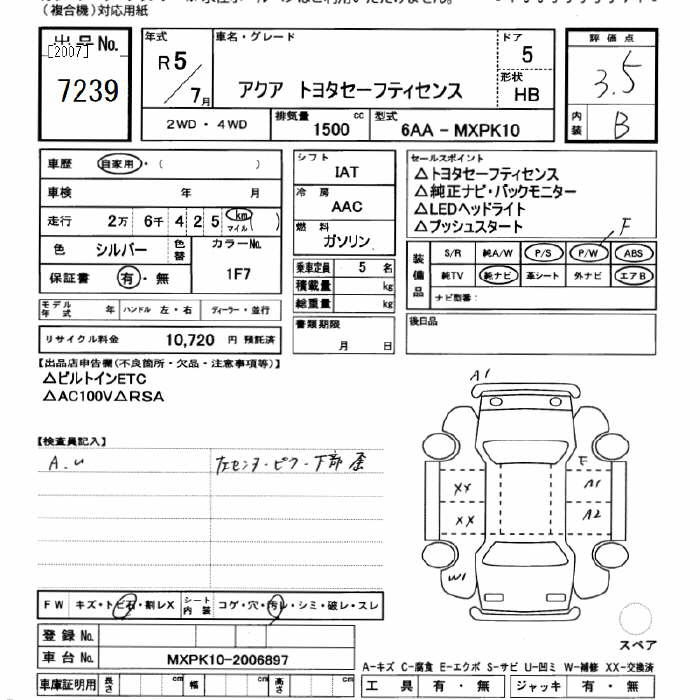 (複合機)対応用紙
出品No.
[2007]
7239
年式
R5/7月
車名・グレード
アクア トヨタセーフティセンス
ドア
5
形状
HB
評価点
3.5
内装
B
2WD・4WD
排気量
1500 cc
型式
6AA-MXPK10
車歴 自家用・( )
車検 年 月
走行 2万 6千 4 2 5 km マイル ( )
色 シルバー 色替 カラーNo.
1F7
保証書 有・無
モデル年式 年 ハンドル 左・右 ディーラー・並行
リサイクル料金 10,720 円 預託済
シフト
IAT
冷房
AAC
燃料
ガソリン
乗車定員 5 名
積載量 kg
総重量 kg
書類期限
月 日
セールスポイント
△トヨタセーフティセンス
△純正ナビ・バックモニター
△LEDヘッドライト
△プッシュスタート
F
装備品
S/R 純A/W P/S P/W ABS
純TV 純ナビ 革シート 外ナビ エアB
ナビ型番:
後日品
【出品店申告欄(不良箇所・欠品・注意事項等)】
△ビルトインETC
△AC100V△RSA
【検査員記入】
A.u
左センタ・ピラー下部歪
A1
E
XX
A1
XX
A2
W1
FW キズ・トビ石・割レX シート内装 コゲ・穴・汚レ・シミ・破レ・スレ
登録No.
車台No. MXPK10-2006897
車庫証明用 長さ cm 幅 cm 高さ cm
スペア
A-キズ C-腐食 E-エクボ S-サビ U-凹ミ W-補修 XX-交換済
工具 有・無 ジャッキ 有・無